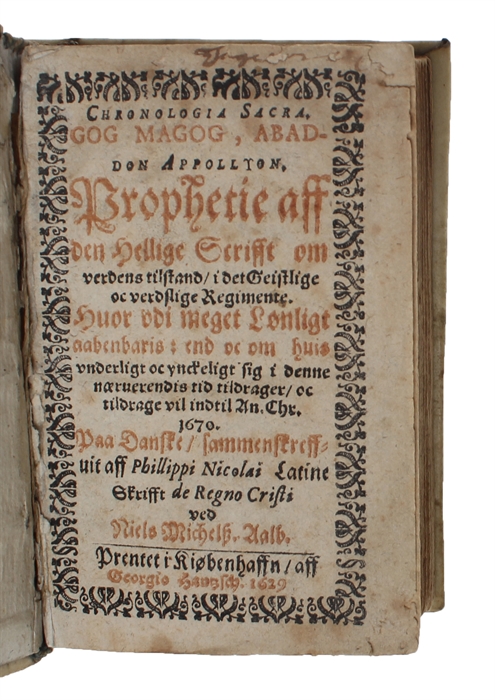 CHRONOLOGIA SACRA,
GOG MAGOG, ABAD-
DON APPOLLYON,
Prophetie aff
den Hellige Scrifft om
verdens tilstand/ i det Geistlige
oc verdslige Regimente.
Huor vdi meget Lønligt
aabenbaris: end oc om huis
vnderligt oc ynckeligt sig i denne
næruerendis tid tildrager/ oc
tildrage vil indtil An. Chr.
1670.
Paa Danske/ sammenskreff-
uit aff Phillippi Nicolai Latine
Skrifft de Regno Cristi
ved
Niels Michelß. Aalb.
Prentet i Kiøbenhaffn/ aff
Georgio Hantzsch. 1629